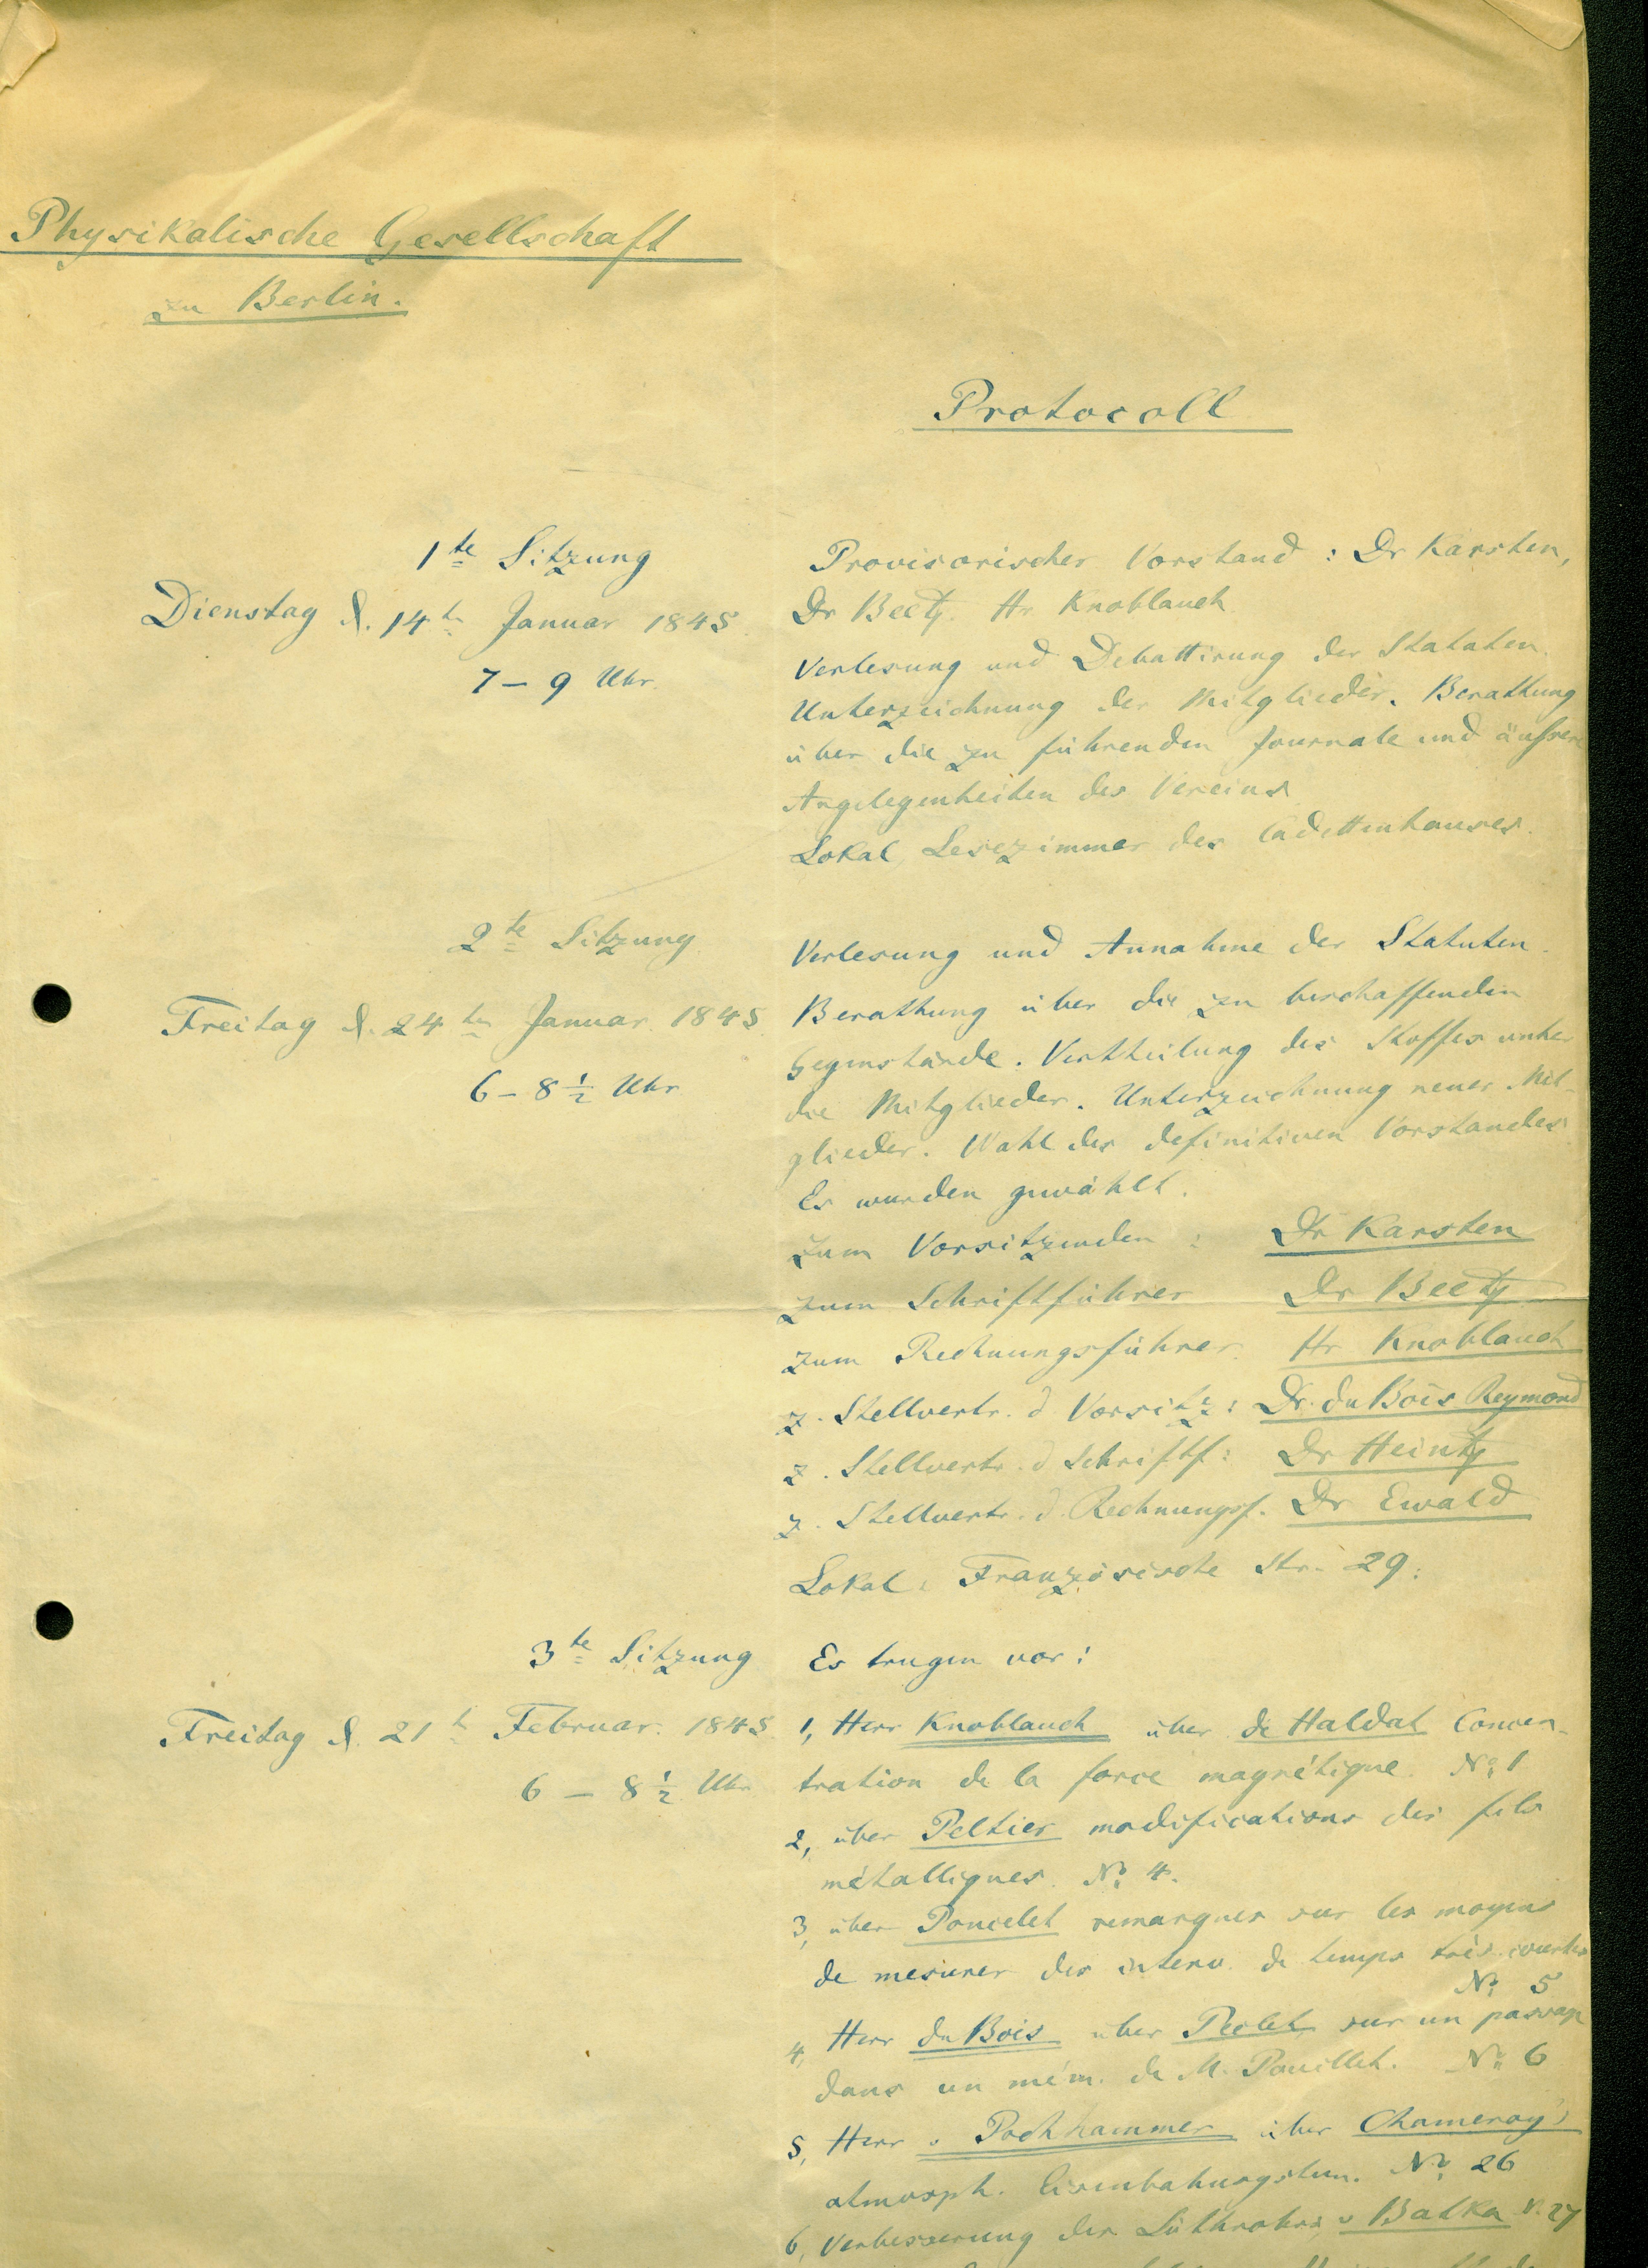 Physikalische Gesellschaft
zu Berlin.
Protocoll
1te Sitzung
Dienstag d. 14t Januar 1845
7 – 9 Uhr
Provisorischer Vorstand : Dr Karsten,
Dr Beetz. Hr Knoblauch
Verlesung und Debattirung der Statuten.
Unterzeichnung der Mitglieder. Berathung
über die zu führenden Journale und äußere
Angelegenheiten des Vereins
Lokal, Lesezimmer des Cadettenhauses.
2te Sitzung
Freitag d. 24ten Januar 1845
6 – 8 1/2 Uhr
Verlesung und Annahme der Statuten.
Berathung über die zu beschaffenden
Gegenstände. Vertheilung des Stoffes unter
die Mitglieder. Unterzeichnung neuer Mit-
glieder. Wahl des definitiven Vorstandes
Es wurden gewählt.
zum Vorsitzenden : Dr Karsten
zum Schriftführer Dr Beetz
zum Rechnungsführer Hr Knoblauch
z. Stellvertr. d Vorsitz : Dr. du Bois Reymond
z. Stellvertr. d Schriftf : Dr Heintz
z. Stellvertr. d. Rechnungsf. Dr Ewald
Lokal : Französische Str. 29.
3te Sitzung
Freitag d. 21t Februar. 1845
6 – 8 1/2 Uhr
Es trugen vor :
1, Herr Knoblauch über de Haldat Concen-
tration de la force magnétique. No 1
2, über Peltier modifications des fils
métalliques. No 4.
3, über Poncelet remarques sur les moyens
de mesurer des interv. de temps très courtes
No 5
4, Herr du Bois über Peclet sur un passage
dans un mém. de M. Pouillet. No 6
5, Herr v Pochhammer über Chameroy's
atmosph. Eisenbahnsystem. No 26
6, Verbesserung des Löthrohrs v Batka N. 27